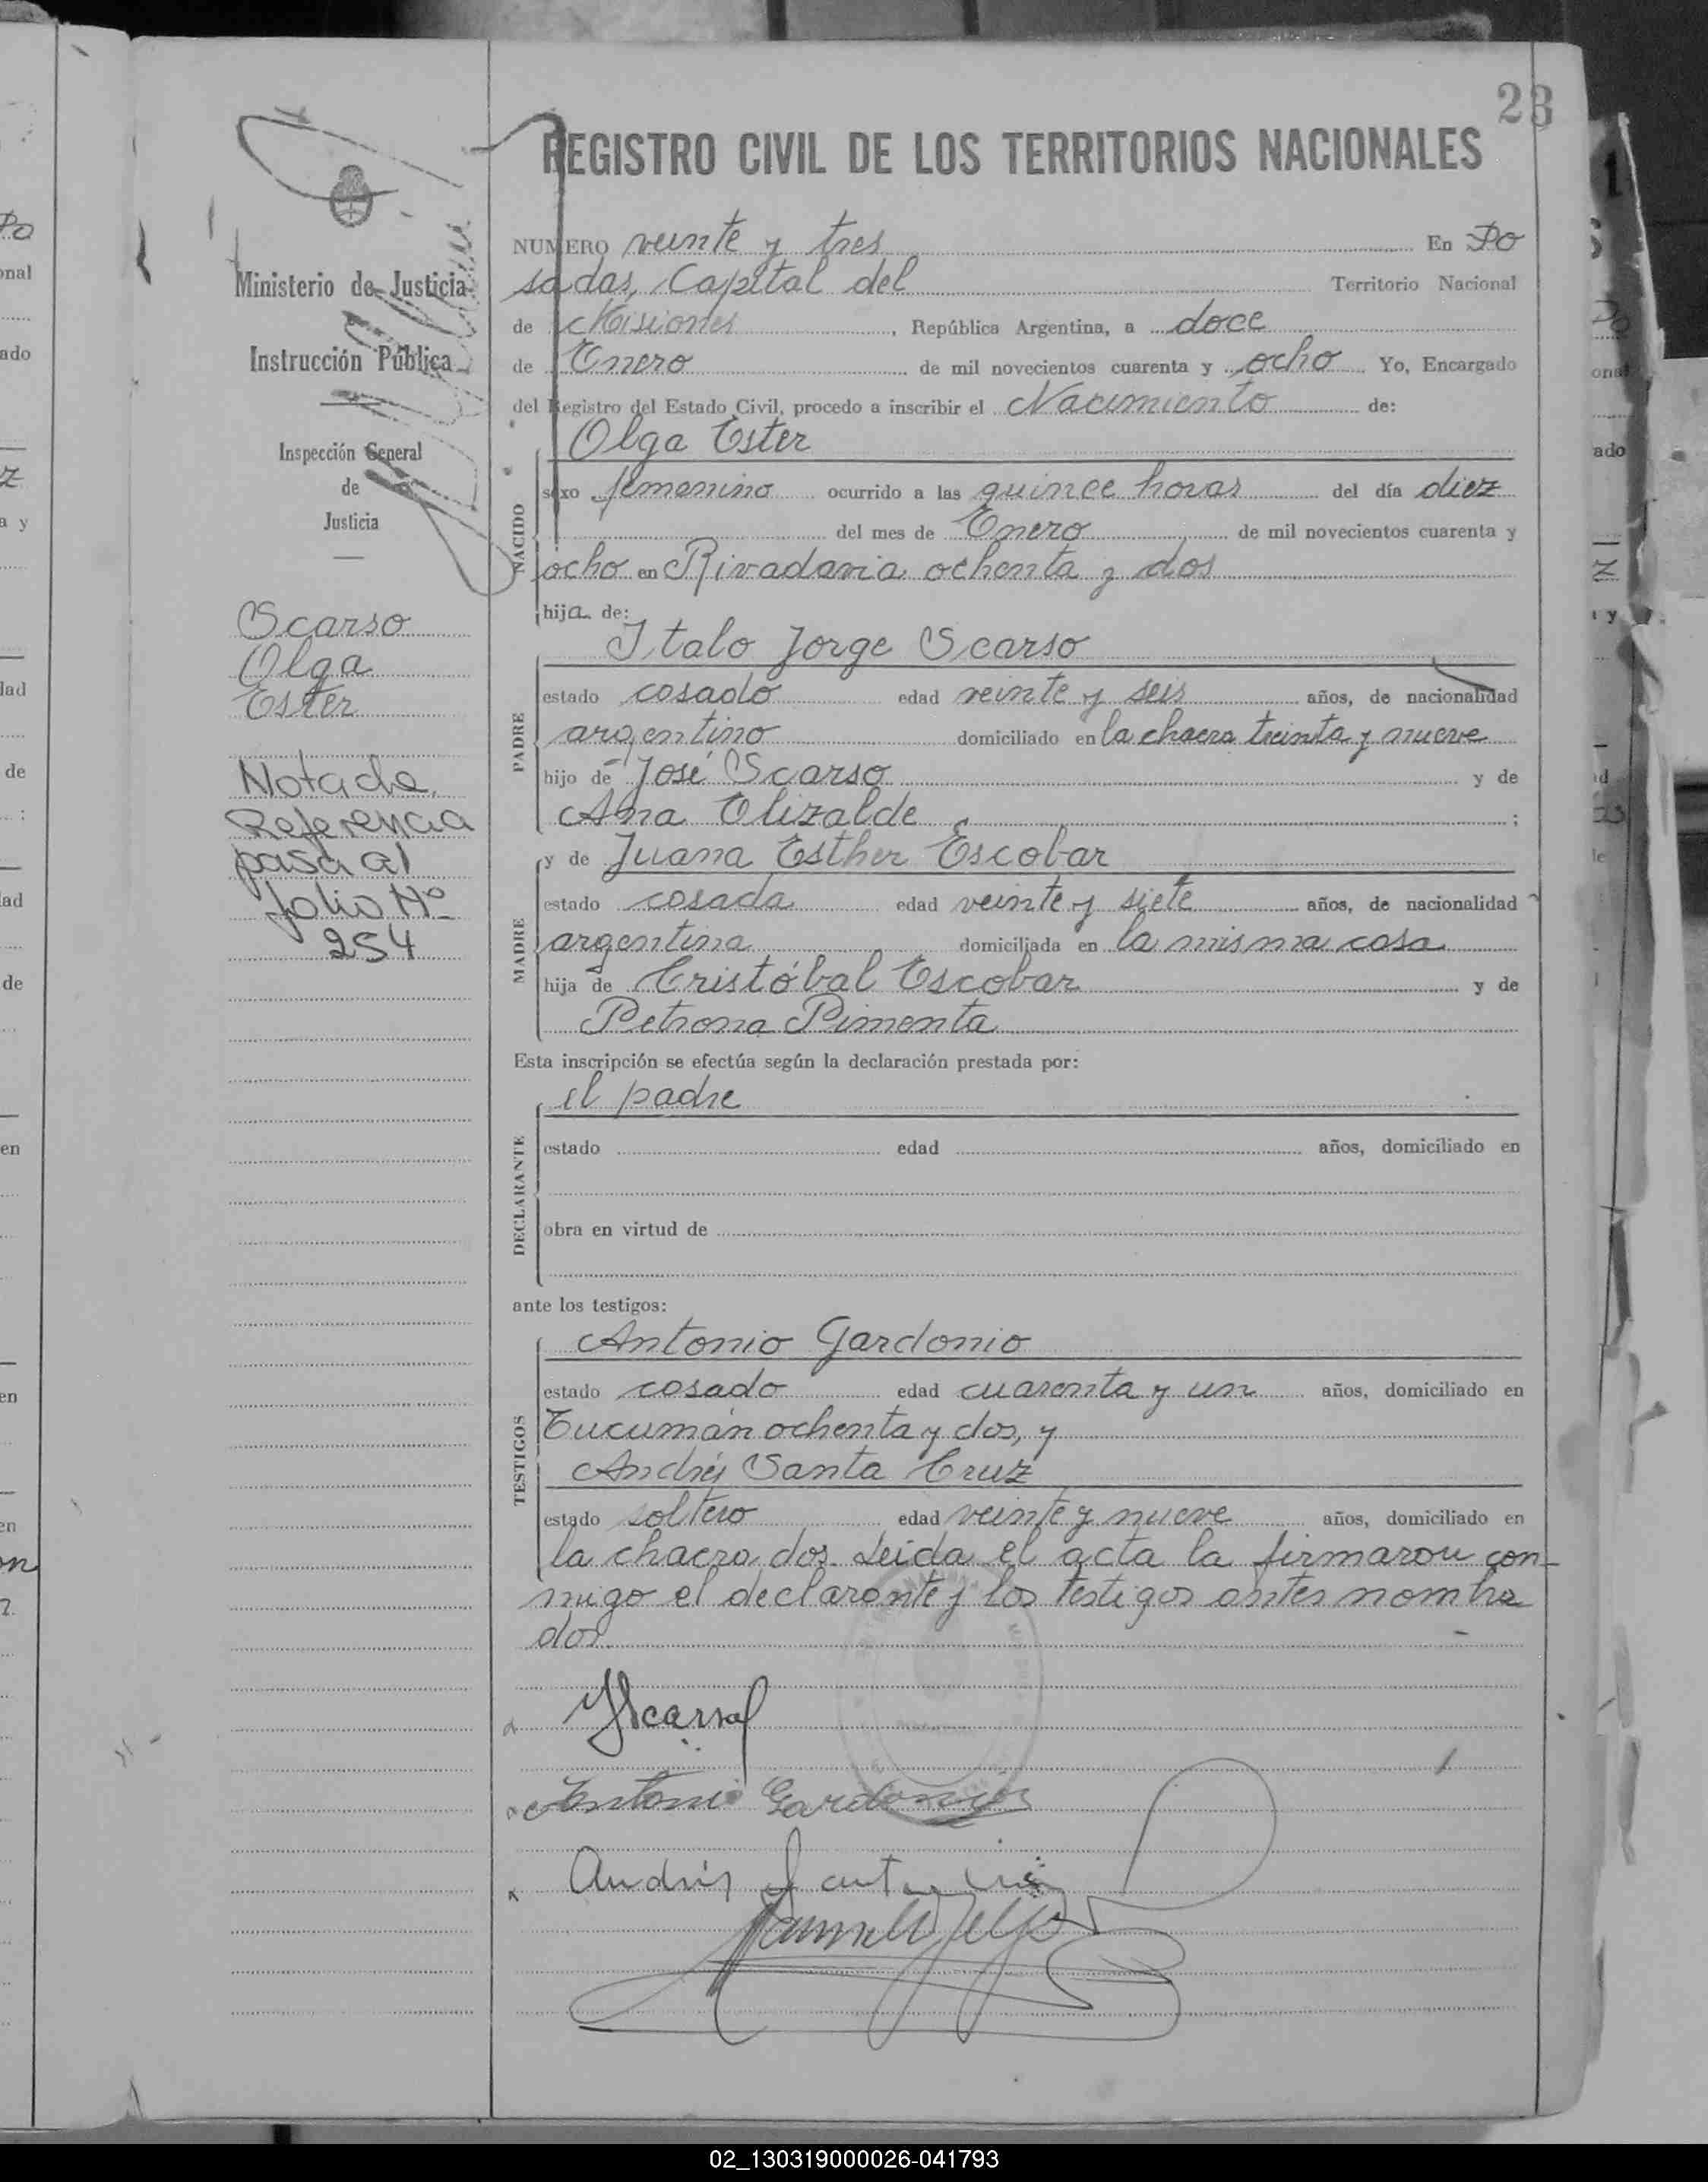 23
REGISTRO CIVIL DE LOS TERRITORIOS NACIONALES
Ministerio de Justicia
Instrucción Pública
Inspección General
de
Justicia
Scarso
Olga
Ester
Nota de
Referencia
pasa al
folio Nº
254
NUMERO veinte y tres En Po
sadas, Capital del Territorio Nacional
de Misiones, República Argentina, a doce
de Enero de mil novecientos cuarenta y ocho Yo, Encargado
del Registro del Estado Civil, procedo a inscribir el Nacimiento de:
NACIDO
Olga Ester
sexo femenino ocurrido a las quince horas del día diez
del mes de Enero de mil novecientos cuarenta y
ocho en Rivadavia ochenta y dos
hija de:
PADRE
Italo Jorge Scarso
estado casado edad veinte y seis años, de nacionalidad
argentino domiciliado en la chacra treinta y nueve
hijo de José Scarso y de
Ana Elizalde ;
MADRE
y de Juana Esther Escobar
estado casada edad veinte y siete años, de nacionalidad
argentina domiciliada en la misma casa
hija de Cristóbal Escobar y de
Petrona Pimenta
Esta inscripción se efectúa según la declaración prestada por:
DECLARANTE
el padre
estado edad años, domiciliado en
obra en virtud de
ante los testigos:
TESTIGOS
Antonio Gardonio
estado casado edad cuarenta y un años, domiciliado en
Tucumán ochenta y dos, y
Andrés Santa Cruz
estado soltero edad veinte y nueve años, domiciliado en
la chacra dos. Leida el acta la firmaron con-
migo el declarante y los testigos antes nombra
dos.
Antonio Gardonio
Andrés Santa Cruz
02_130319000026-041793